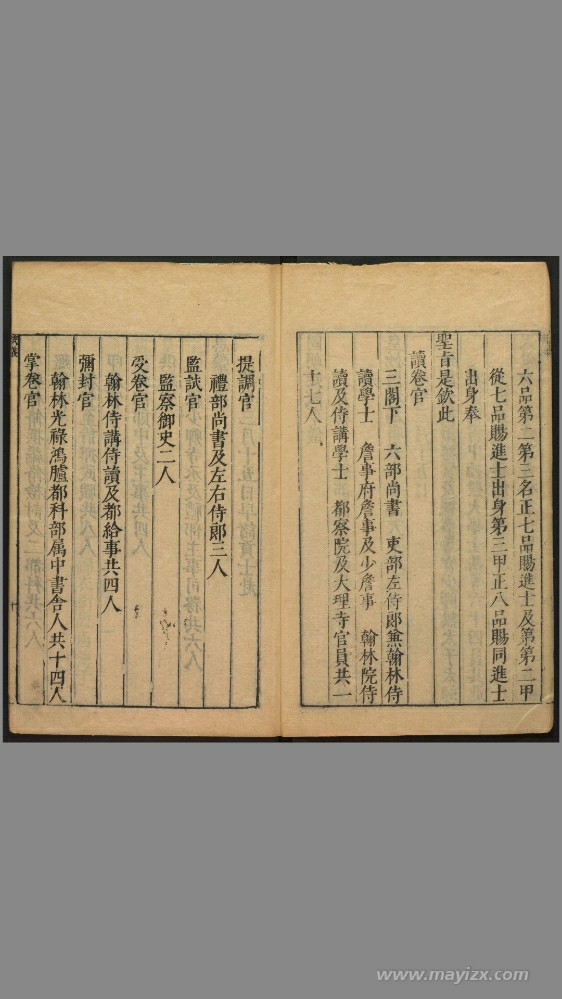 六品第二第三名正七品賜進士及第第二甲
從七品賜進士出身第三甲正八品賜同進士
出身奉
聖旨是欽此
讀卷官
三閣下 六部尚書 吏部左侍郎兼翰林侍
讀學士 詹事府詹事及少詹事 翰林院侍
讀及侍講學士 都察院及大理寺官員共一
十七人
提調官
禮部尚書及左右侍郎三人
監試官
監察御史二人
受卷官
翰林侍講侍讀及都給事共四人
彌封官
翰林光祿鴻臚都科部属中書舍人共十四人
掌卷官
www.mayizx.com